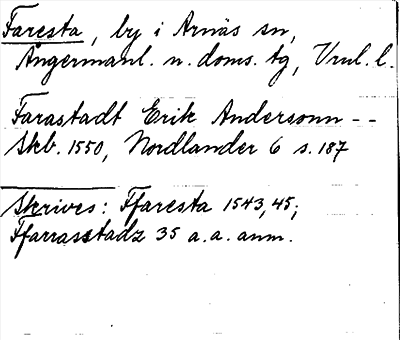 Faresta, by i Arnäs sn,
Ångermanl. n. doms. tg, Vrnl. l.
Farastadt Erik Andersonn --
Skb. 1550, Nordlander 6 s. 187
Skrives: Ffaresta 1543, 45;
Ffarrasstadz 35 a.a. anm.